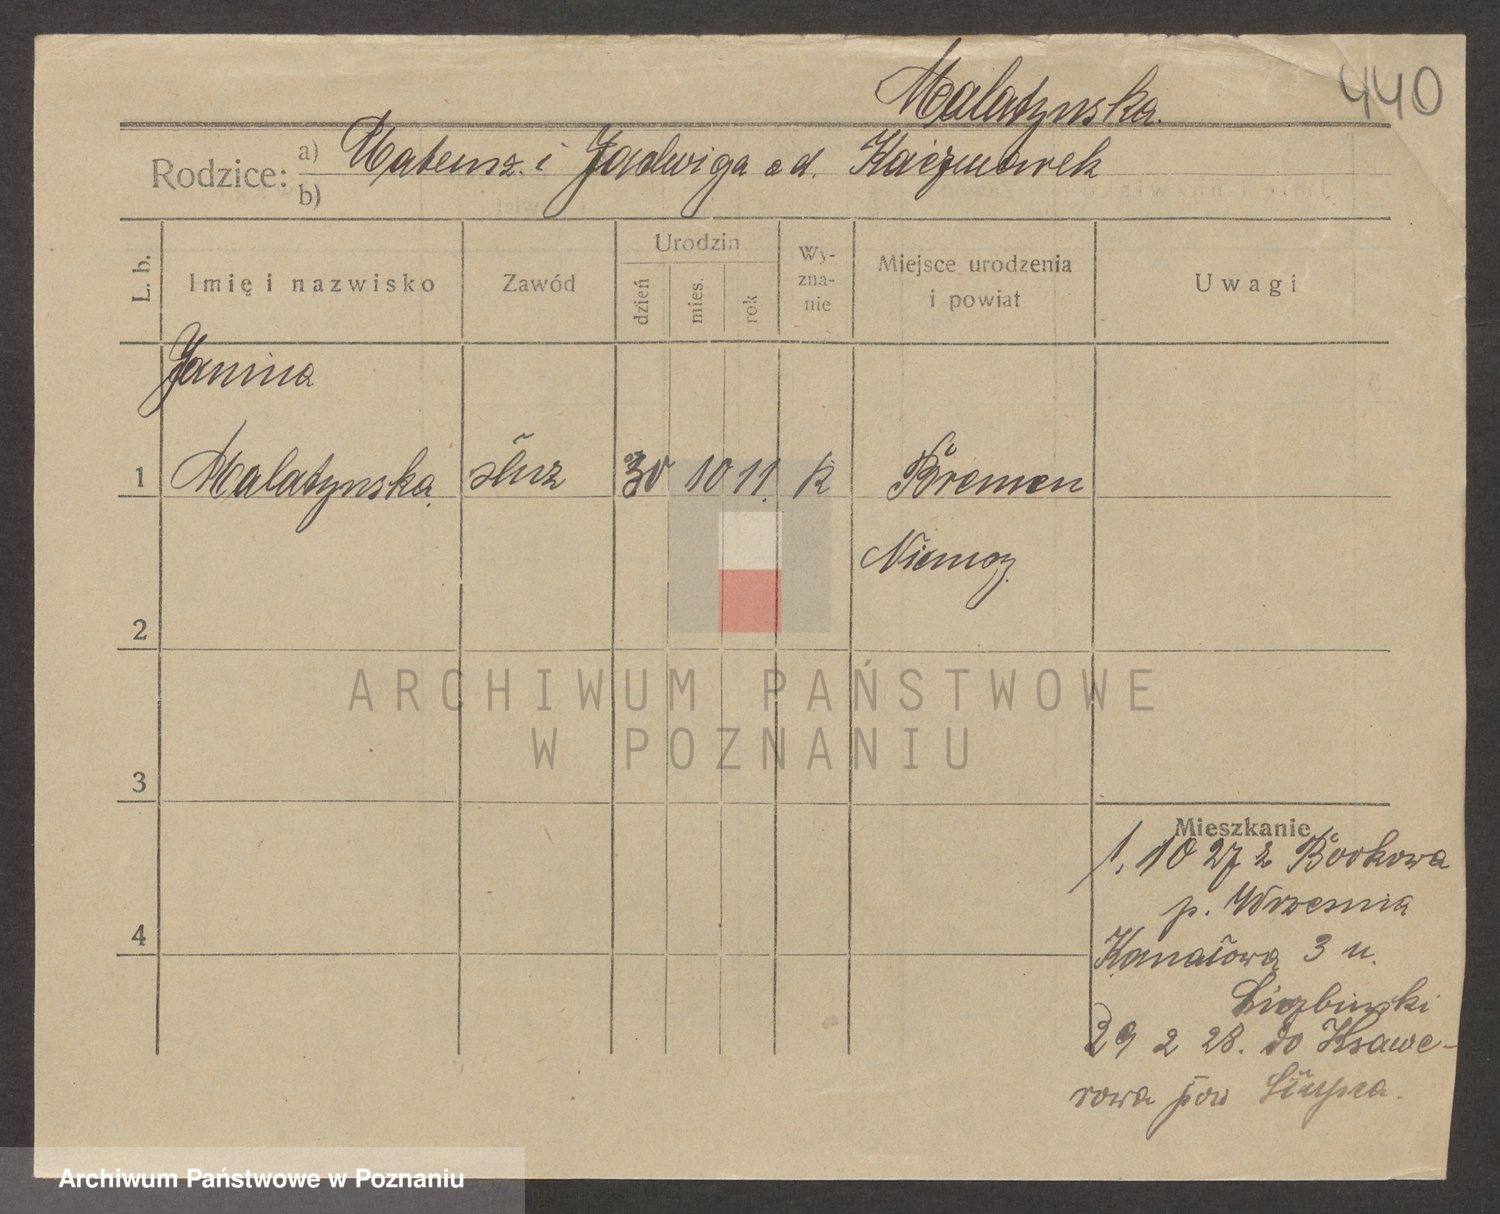 440
Malatynska.
Rodzice: a) Mateusz. i Jadwiga od. Kaczmarek
b)
L. b.
Imię i nazwisko
Zawód
Urodzin
dzień
mies.
rok
Wy-
zna-
nie
Miejsce urodzenia
i powiat
Uwagi
Janina
1 Malatynska służ 30 10 11. K Bremen
Niemcy
2
ARCHIWUM PAŃSTWOWE
W POZNANIU
3
Mieszkanie
1. 10 27 z Borkowa
p. Wrzesnia
4
Kanałowa 3 u.
Liczbinski
29 2 28. do Ksawe-
rowa pow Słupca.
Archiwum Państwowe w Poznaniu